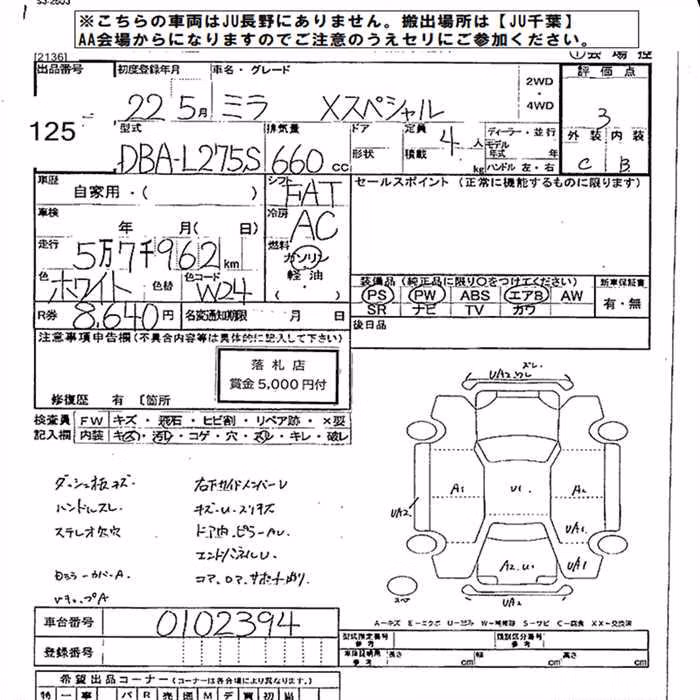 ※こちらの車両はJU長野にありません。搬出場所は【JU千葉】
AA会場からになりますのでご注意のうえセリにご参加ください。
[2136]
出品番号 初度登録年月 車名・グレード 2WD・4WD 評価点
125 22 5月 ミラ Xスペシャル 3
型式 排気量 ドア 定員 4人 ディーラー・並行 外装 内装
DBA-L275S 660cc 形状 積載 kg モデル年式 年 C B
ハンドル 左・右
車歴 自家用・( ) シフト FAT セールスポイント (正常に機能するものに限ります)
車検 年 月( 日) 冷房 AC
走行 5万7千962km 燃料 ガソリン 軽油・( )
色 ホワイト 色替 色コード W24
装備品 (純正品に限り○をつけてください) 新車保証書
PS PW ABS エアB AW 有・無
SR ナビ TV カワ
R券 8,640円 名変通知期限 月 日 後日品
注意事項申告欄(不具合内容等は具体的に記入して下さい)
落札店
賞金5,000円付
修復歴 有 [箇所
検査員 FW キズ・飛石・ヒビ割・リペア跡・×要
記入欄 内装 キズ・汚レ・コゲ・穴・スレ・キレ・破レ
ダッシュ板キズ 右下サイドメンバーU
ハンドルスレ キズ・U・スリキズ
ステレオ欠穴 ドア内・ピラーAU
エンドパネルU
A1 U1 A2
UA2
UA1
A2.U1 UA1
スペア
UA2
A-キズ E-エクボ U-凹み W-補修跡 S-サビ C-腐食 XX-交換済
車台番号 0102394
登録番号
型式指定番号 参考 類別区分番号 参考
車体証明用 参考 長さ cm 幅 cm 高さ cm
希望出品コーナー (コーナーは各会場により異なります。)